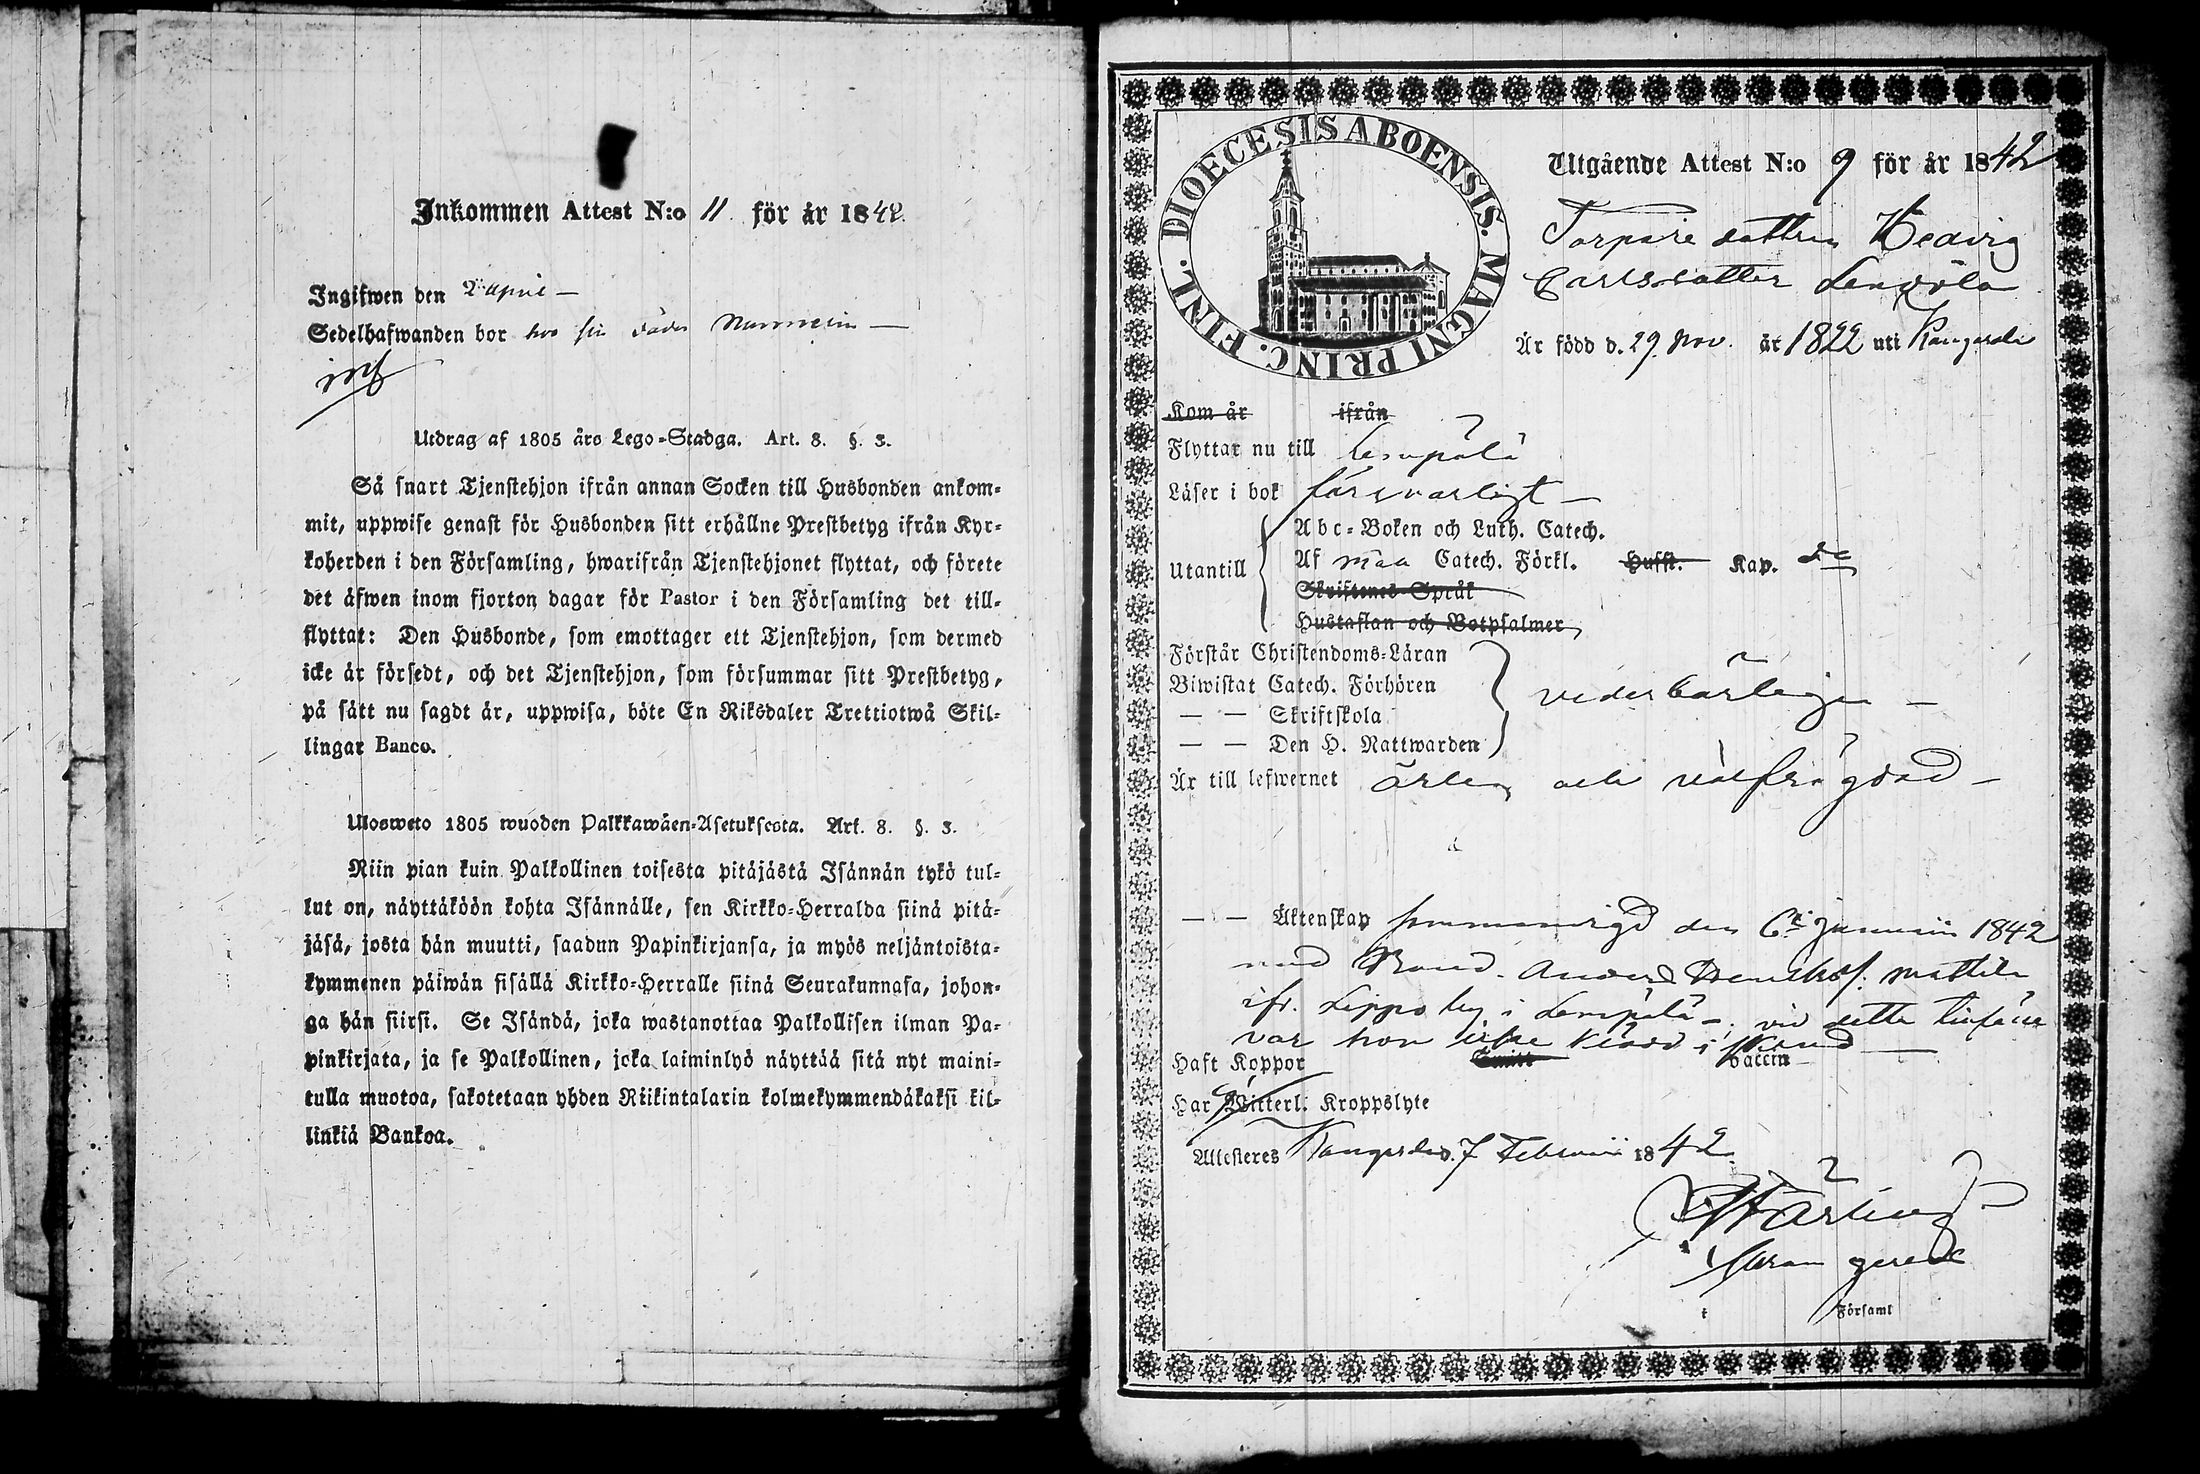 Inkommen Attest N:o 11 för år 1842
Ingifwen den 2 April —
Sedelhafwanden bor hos sin
Utdrag af 1805 års Lego-Stadga. Art. 8. §. 3.
Så snart Tjenstehjon ifrån annan Socken till Husbonden ankom-
mit, uppwise genast för Husbonden sitt erhållne Prestbetyg ifrån Kyr-
koherden i den Församling, hwarifrån Tjenstehjonet flyttat, och förete
det äfwen inom fjorton dagar för Pastor i den Församling det till-
flyttat: Den Husbonde, som emottager ett Tjenstehjon, som dermed
icke är försedt, och det Tjenstehjon, som försummar sitt Prestbetyg,
på sätt nu sagdt är, uppwisa, böte En Riksdaler Trettiotwå Skil-
lingar Banco.
Ulosweto 1805 wuoden Palkkawäen-Asetuksesta. Art. 8. §. 3.
Niin pian kuin Palkollinen toisesta pitäjästä Isännän tykö tul-
lut on, näyttäköön kohta Isännälle, sen Kirkko-Herralda siinä pitä-
jäsä, josta hän muutti, saadun Papinkirjansa, ja myös neljäntoista-
kymmenen päiwän sisällä Kirkko-Herralle siinä Seurakunnasa, johon-
ga hän siirsi. Se Isändä, joka wastanottaa Palkollisen ilman Pa-
pinkirjata, ja se Palkollinen, joka laiminlyö näyttää sitä nyt maini-
tulla muotoa, sakotetaan yhden Riikintalarin kolmekymmendäkaksi kil-
linkiä Bankoa.
DIOECESIS ABOENSIS. MAGNI PRINC. FINL.
Utgående Attest N:o 9 för år 1842
Torpare dottren Hedvig
Carlsdotter
Är född d. 29 Nov. år 1822 uti Kangasala
Kom år ifrån
Flyttar nu till Lempälä
Läser i bok försvarligt —
Utantill
Abc-Boken och Luth. Catech.
Af Catech. Förkl. Hufst. Kap.
Skriftenes Språk
Hustaflan och Botpsalmer
Förstår Christendoms-Läran
Biwistat Catech. Förhören
— — Skriftskola
— — Den H. Nattwarden
vederbörligen —
Är till lefwernet ärlig och välfrägdad —
— — Äktenskap sammanvigd den 6 Januarii 1842
med Bond. Anders Mattila
ifr. Lippo by i Lempälä — vid detta tillfälle
var hon icke klädd i skrud —
Haft Koppor Smitt Vaccin
Har Witterl. Kroppslyte
Attesteres Kangasala d. 7 Februarii 1842
Församl